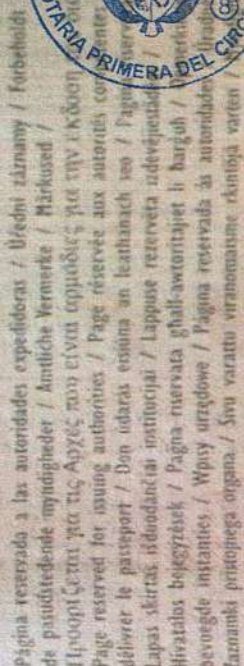 NOTARIA PRIMERA DEL CIRC
8
Página reservada a las autoridades expedidoras / Úřední záznamy / Forbeholdt
de pasudstedende myndigheder / Amtliche Vermerke / Märkused /
Προορίζεται για τις Αρχές που είναι αρμόδιες για την έκδοση
Page reserved for issuing authorities / Page réservée aux autorités
délivrer le passeport / Don údarás eisiúna an leathanach seo /
lapas skirtas išduodančiai institucijai / Lappuse rezervēta izdevējiestādēm /
hivatalos bejegyzések / Paġna riservata għall-awtoritajiet li
bevoegde instanties / Wpisy urzędowe / Página reservada às autoridades
zaznamki pristojnega organa / Sivu varattu viranomaisen merkintöjä varten /